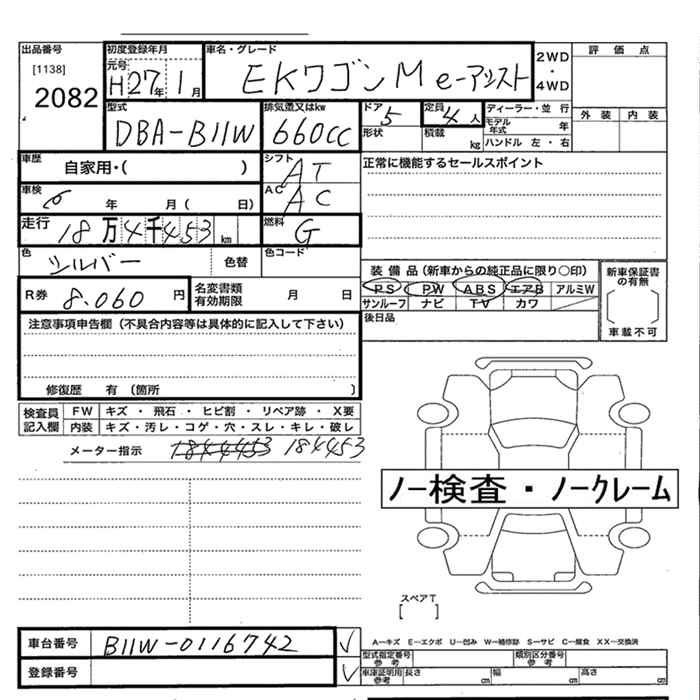 出品番号 初度登録年月 車名・グレード 評 価 点
[1138] 元号 H27年 1月 EKワゴン M e-アシスト 2WD・4WD
2082
型式 排気量又はkw ドア 定員 ディーラー・並 行 外 装 内 装
DBA-B11W 660cc 5 4人 モデル年式 年
形状 積載 kg ハンドル 左 ・ 右
車歴 自家用・( ) シフト AT 正常に機能するセールスポイント
車検 6 年 月 ( 日) AC AC
走行 18万4千453km 燃料 G
色 シルバー 色替 色コード
装 備 品 (新車からの純正品に限り○印) 新車保証書の有無
R券 8.060 円 名変書類有効期限 月 日 PS PW ABS エアB アルミW
サンルーフ ナビ TV カワ 車載不可
注意事項申告欄 (不具合内容等は具体的に記入して下さい) 後日品
修復歴 有 (箇所 )
検査員記入欄 FW キズ ・ 飛石 ・ ヒビ割 ・ リペア跡 ・ X要
内装 キズ・汚レ・コゲ・穴・スレ・キレ・破レ
メーター指示 184453
ノー検査・ノークレーム
スペアT
[ ]
車台番号 B11W-0116742 ✓ A−キズ E−エクボ U−凹み W−補修跡 S−サビ C−腐食 XX−交換済
型式指定番号 参考 類別区分番号 参考
登録番号 ✓ 車庫証明用 参考 長さ cm 幅 cm 高さ cm